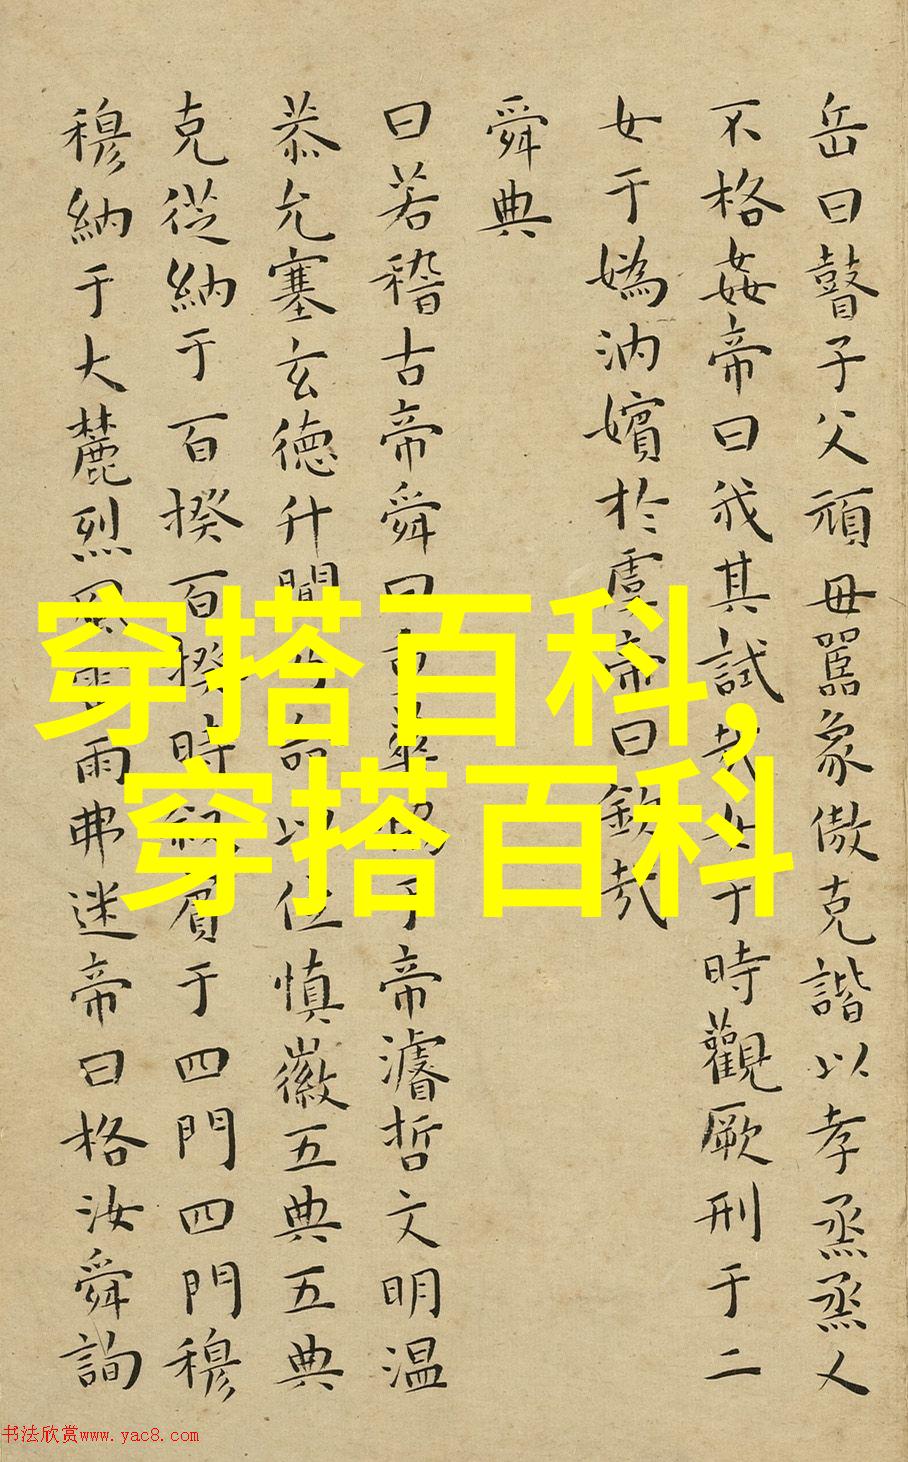 岳曰瞽子父頑毋嚚象傲克諧以孝烝烝乂
不格姦帝曰我其試哉女于時觀厥刑于二
女于媯汭嬪於虞帝曰欽哉
舜典
曰若稽古帝舜曰重華協于帝濬哲文明温
恭允塞玄德升聞乃命以位慎徽五典五典
克從納于百揆百揆時叙賓于四門四門穆
穆納于大麓烈風雷雨弗迷帝曰格汝舜詢
穿搭百科,
穿搭百科
书法欣赏www.yac8.com